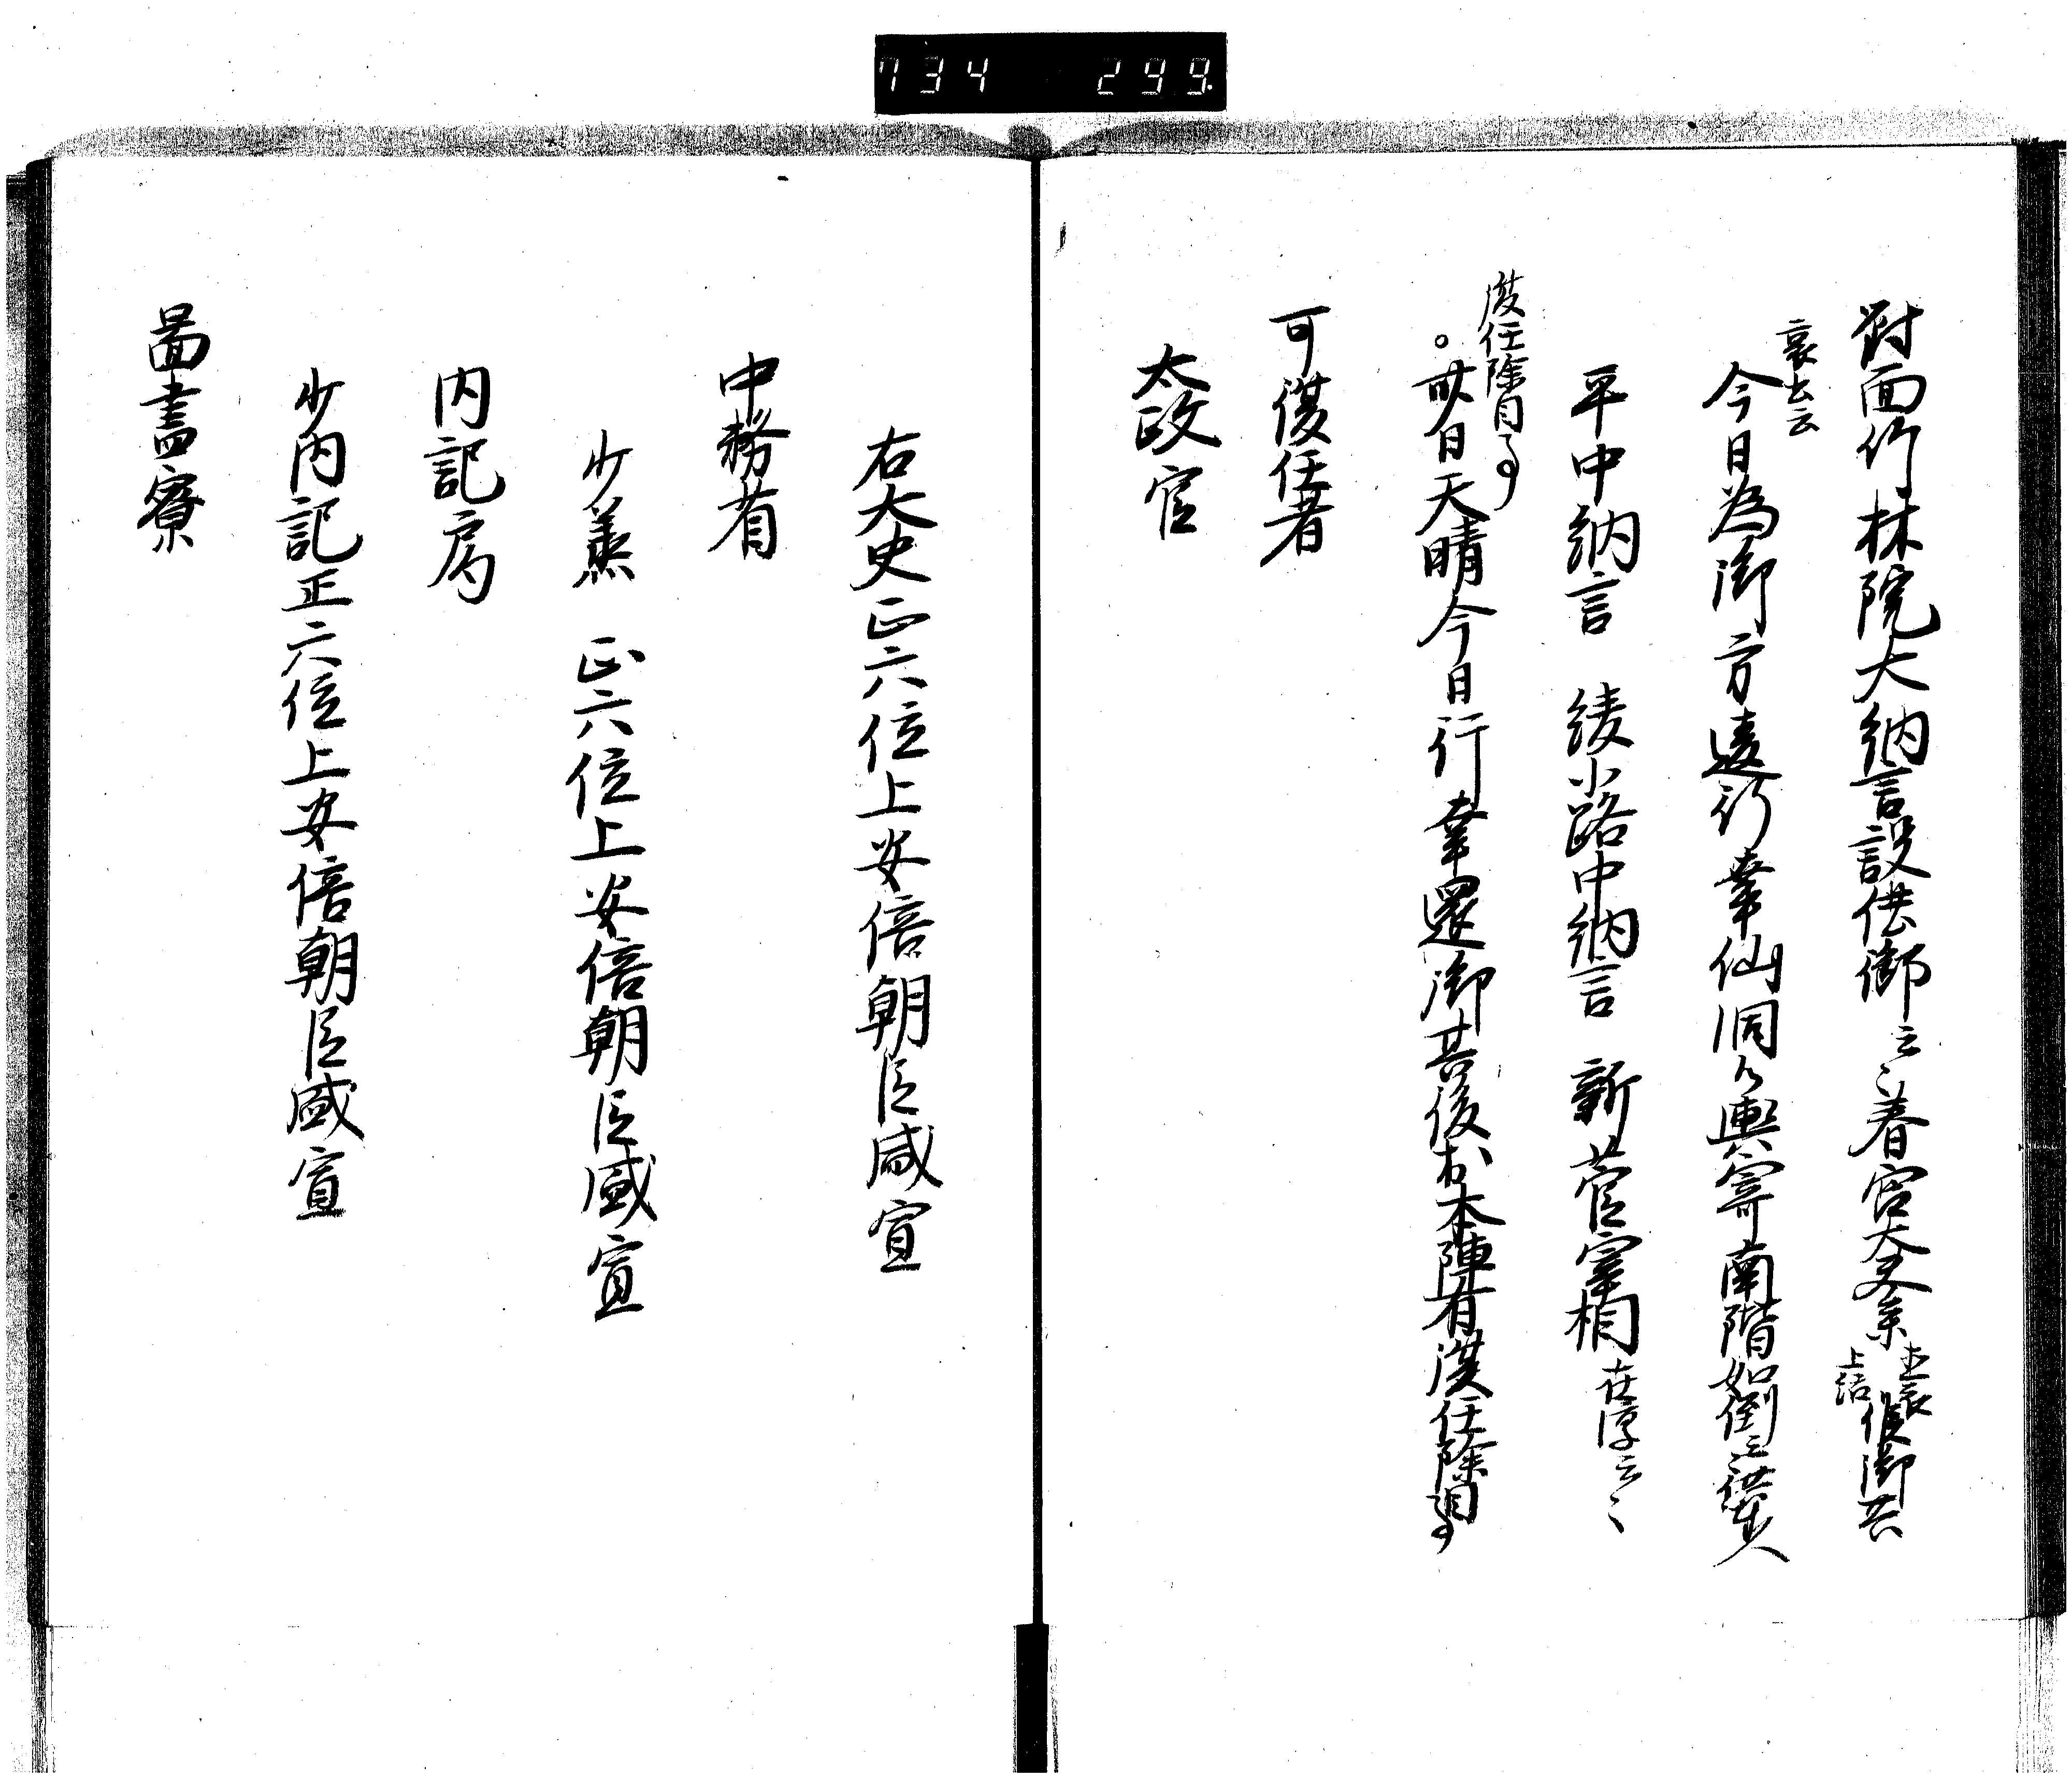 734 299.
対面竹林院大納言設供御云々春宮大夫参 直衣 上結 候御共
今日為御方違行幸仙洞乃輿寄南階如例云々供奉人
平中納言 綾小路中納言 新菅宰相 在淳云々
復任除目事
廿日天晴今日行幸還御其後於本陣有復任除目事
可復任者
太政官
右大史正六位上安倍朝臣盛宣
中務省
少丞 正六位上安倍朝臣盛宣
内記局
少内記正六位上安倍朝臣盛宣
啚書寮